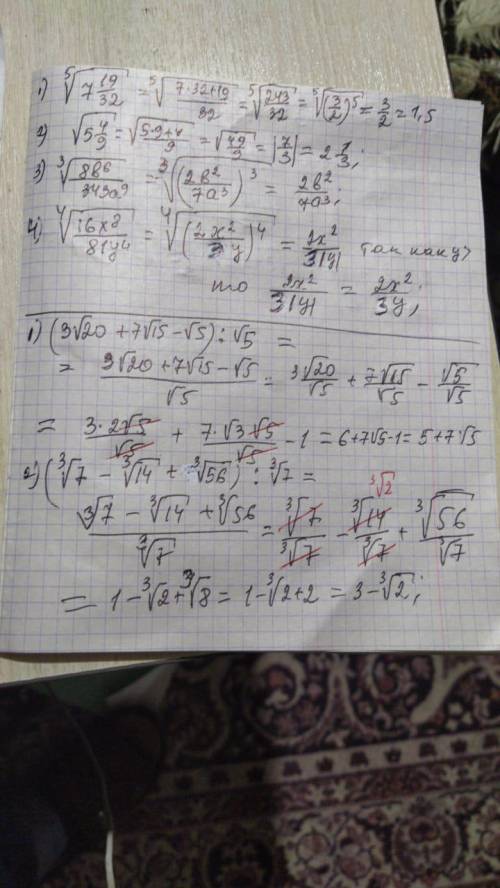 1) ⁵√(7 19/32) = ⁵√((7·32+19)/32) = ⁵√(243/32) = ⁵√((3/2)⁵) = 3/2 = 1,5
2) √(5 4/9) = √((5·9+4)/9) = √(49/9) = |7/3| = 2 1/3;
3) ³√(8b⁶/343a⁹) = ³√((2b²/7a³)³) = 2b²/7a³;
4) ⁴√(16x⁸/81y⁴) = ⁴√((2x²/3y)⁴) = 2x²/3|y| так как y>
то 2x²/3|y| = 2x²/3y;
1) (3√20 + 7√15 - √5) : √5 =
= (3√20 + 7√15 - √5)/√5 = 3√20/√5 + 7√15/√5 - √5/√5
= 3·2√5/√5 + 7·√3·√5/√5 - 1 = 6+7√5-1 = 5+7√5
2) (³√7 - ³√14 + ³√56) : ³√7 =
³√2
(³√7 - ³√14 + ³√56)/³√7 = ³√7/³√7 - ³√14/³√7 + ³√56/³√7
= 1 - ³√2 + ³√8 = 1 - ³√2 + 2 = 3 - ³√2;